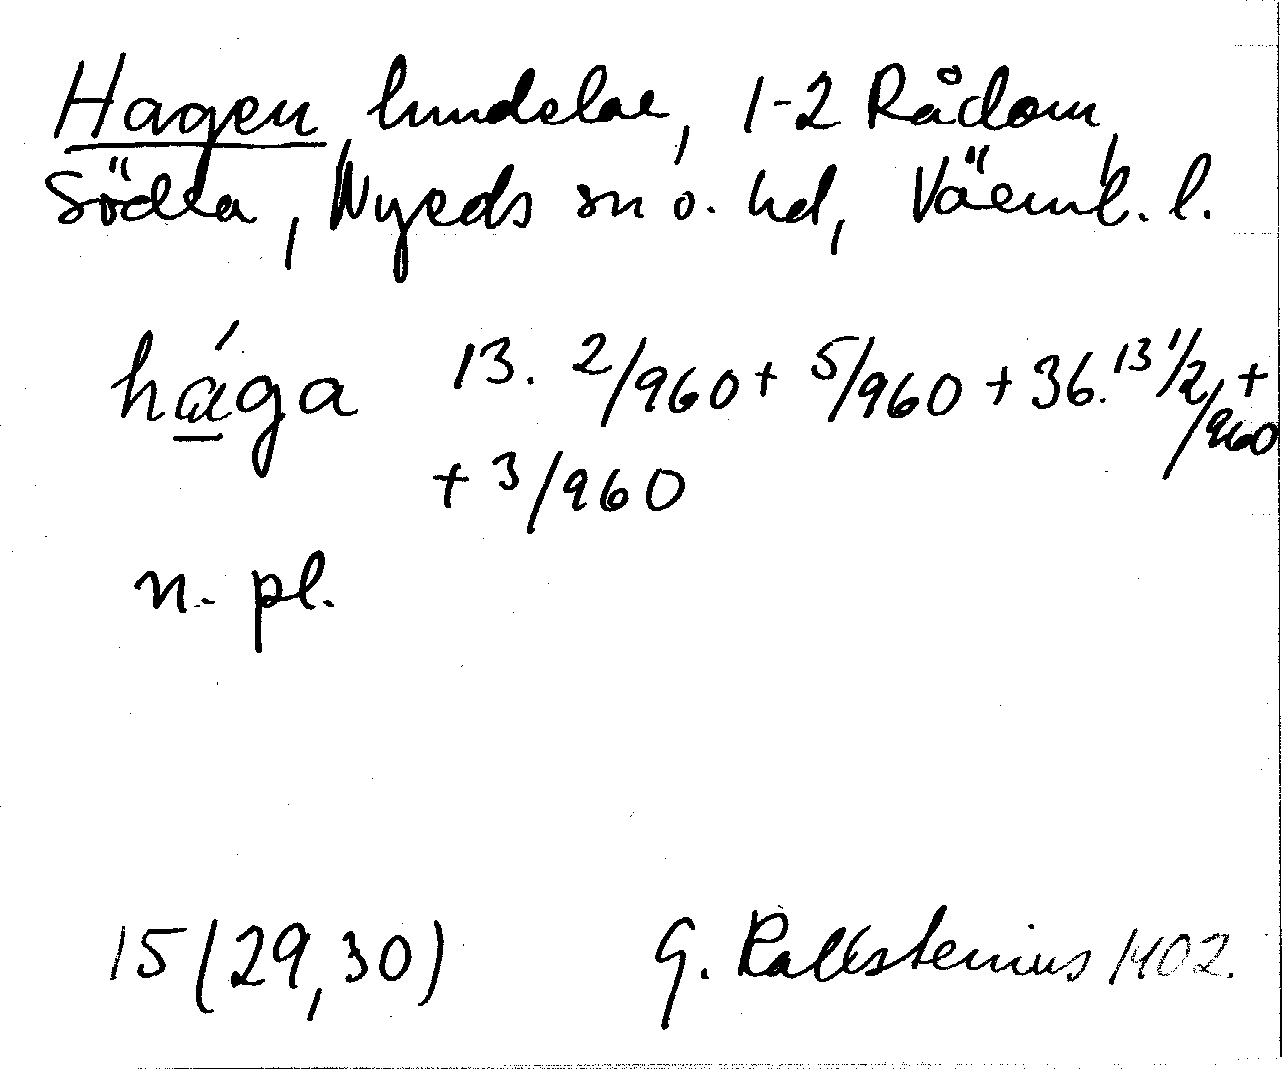 Hagen, hmdelar, 1-2 Rådom,
Södra, Nyeds sn o. hd, Värml. l.
hága 13. 2/960 + 5/960 + 36. 13 1/2/960 +
+ 3/960
n. pl.
15 (29, 30) G. Kallstenius 1902.